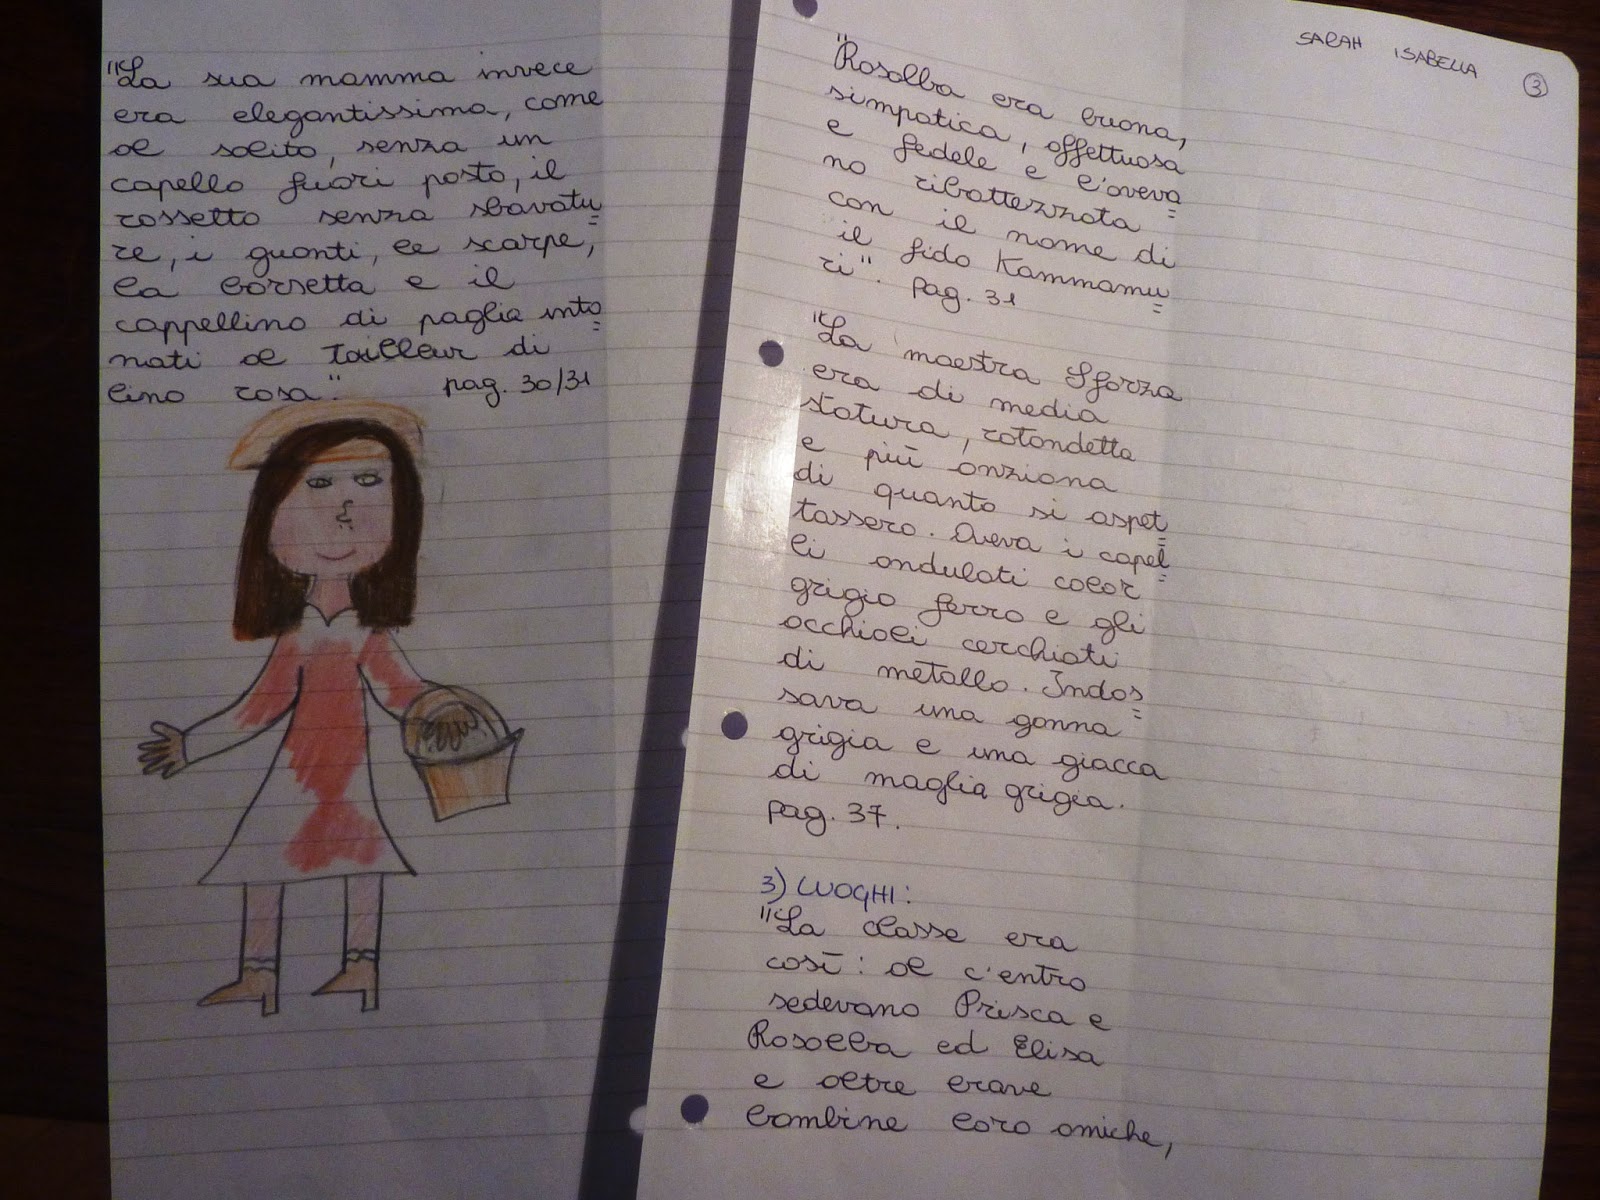 "La sua mamma invece
era elegantissima, come
al solito, senza un
capello fuori posto, il
rossetto senza sbavatu
re, i guanti, le scarpe,
la borsetta e il
cappellino di paglia into
nati al tailleur di
lino rosa". pag. 30/31
SARAH ISABELLA 3
"Rosalba era buona,
simpatica, affettuosa
e fedele e l'aveva
no ribattezzata
con il nome di
il fido Kammamu
ri". pag. 31
"La maestra Sforza
era di media
statura, rotondetta
e più anziana
di quanto si aspet
tassero. Aveva i capel
li ondulati color
grigio ferro e gli
occhiali cerchiati
di metallo. Indos
sava una gonna
grigia e una giacca
di maglia grigia.
pag. 37.
3) LUOGHI:
"La classe era
così: al c'entro
sedevano Prisca e
Rosalba ed Elisa
e altre brave
bambine loro amiche,